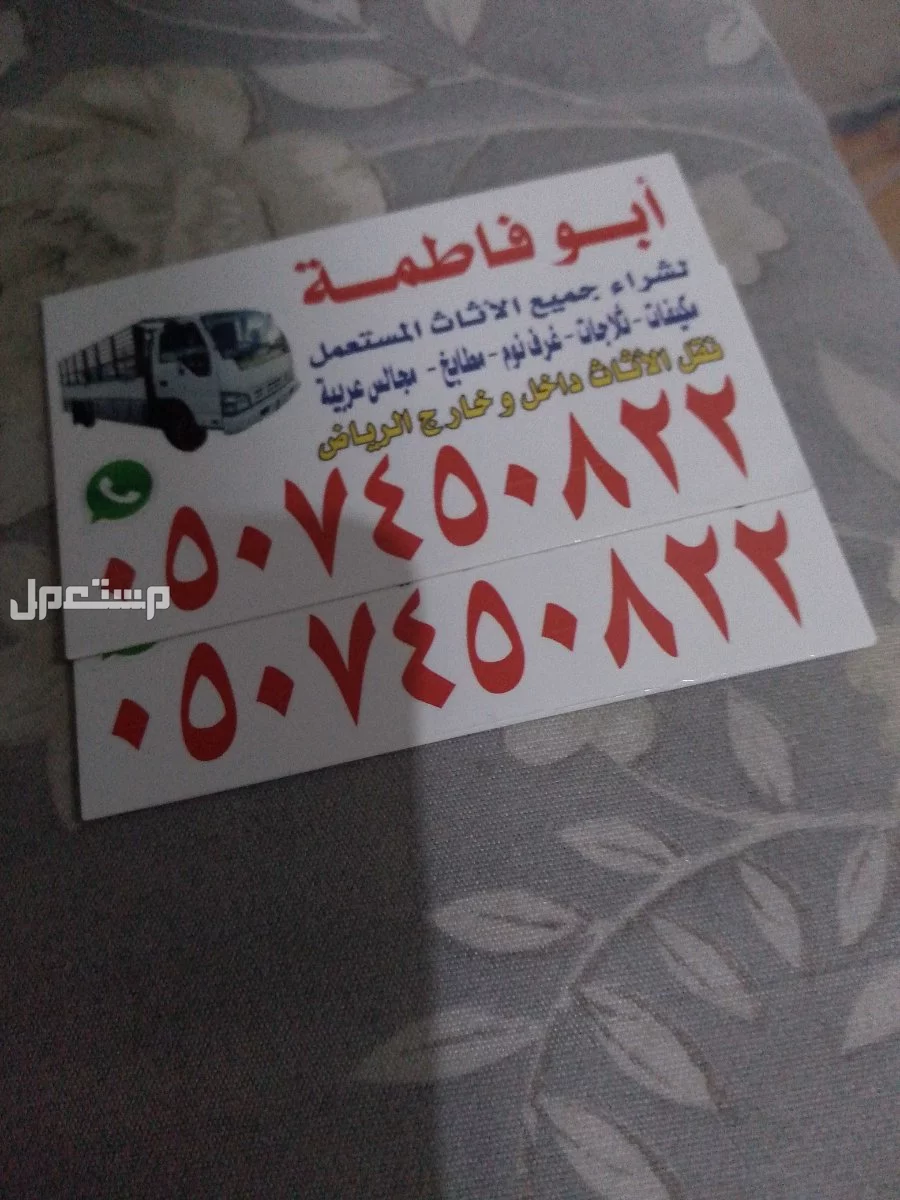 أبو فاطمة
لشراء جميع الاثاث المستعمل
مكيفات - ثلاجات - غرف نوم - مطابخ - مجالس عربية
نقل الأثاث داخل و خارج الرياض
٠٥٠٧٤٥٠٨٢٢
٠٥٠٧٤٥٠٨٢٢
مستعمل